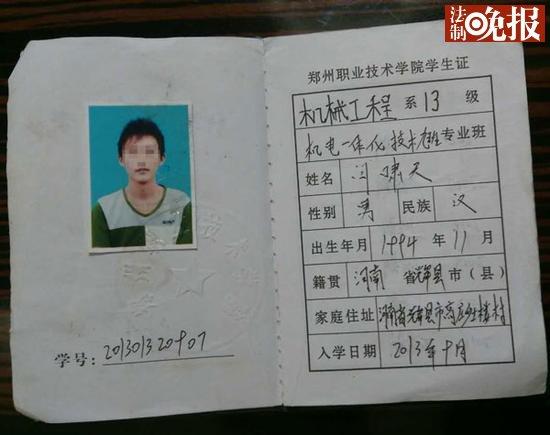 法制晚报
郑州职业技术学院学生证
机械工程 系 13 级
机电一体化技术 专业 班
姓名 闫啸天
性别 男 民族 汉
出生年月 1994年 11月
籍贯 河南 省辉县市(县)
家庭住址 河南省辉县市 村
入学日期 2013年9月
学号: 201301320907